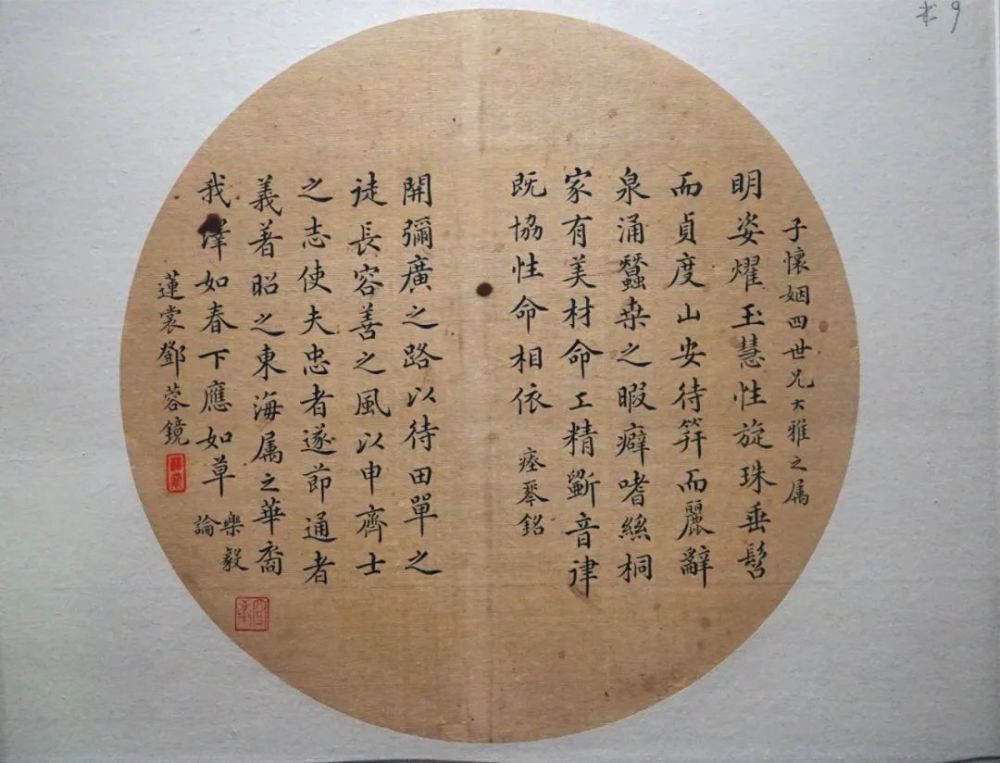 子懷姻四世兄大雅之属
明姿燿玉慧性旋珠垂髫
而貞度山安待笄而麗辭
泉涌蠶桒之暇癖嗜絲桐
家有美材命工精斵音律
既協性命相依
瘞琴銘
開彌廣之路以待田單之
徒長容善之風以申齊士
之志使夫忠者遂節通者
義著昭之東海属之華裔
我澤如春下應如草
樂毅
論
蓮裳鄧蓉鏡
9